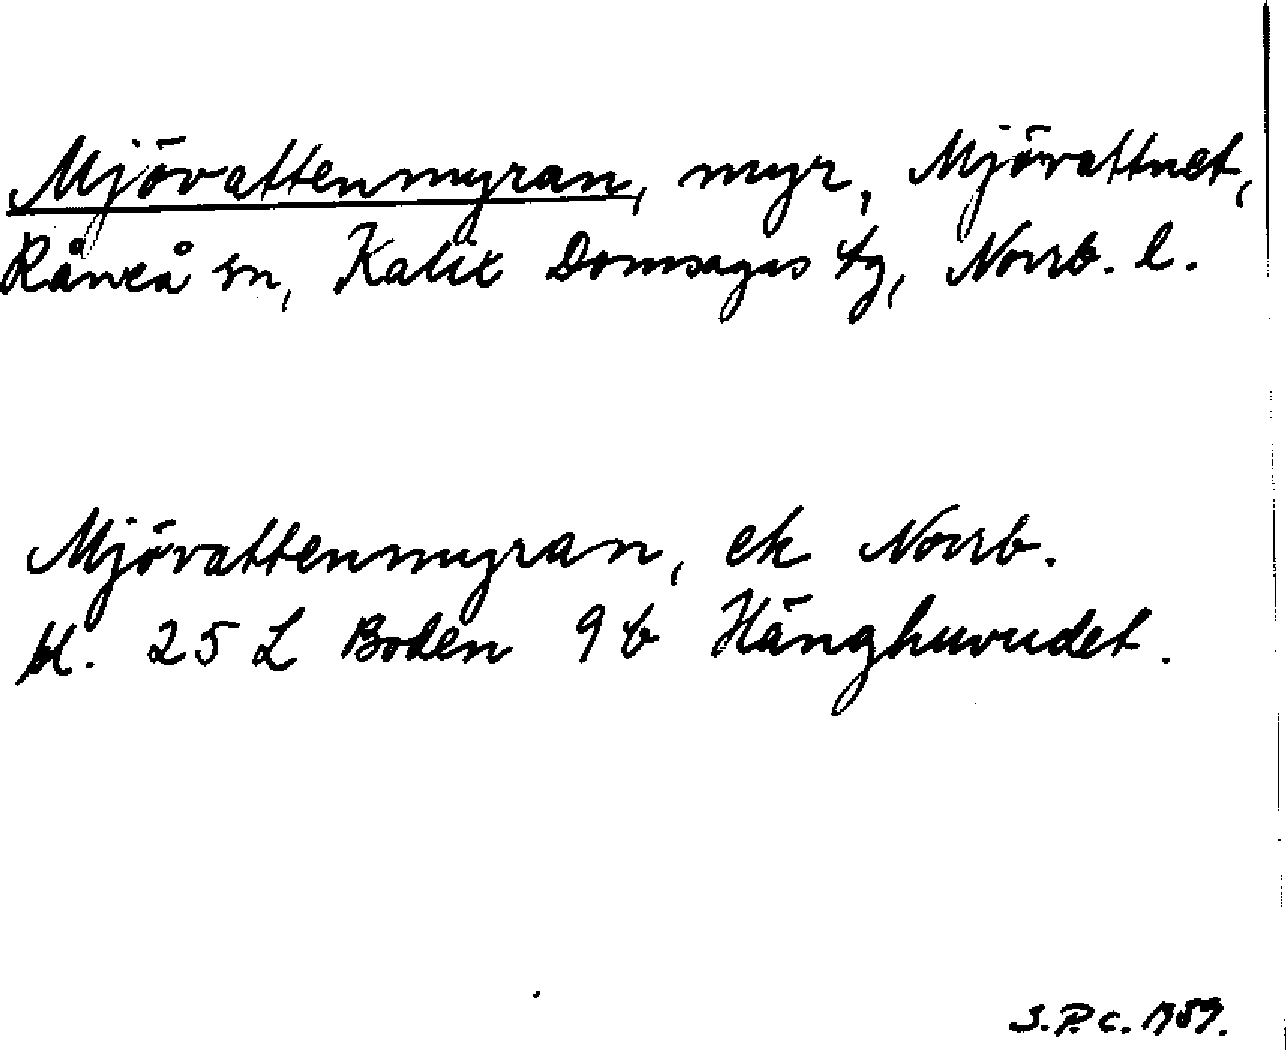 Mjövattenmyran, myr, Mjövattnet,
Råneå sn, Kalix Domsagas tg, Norrb. l.
Mjövattenmyran, ek Norrb.
bl. 25 L Boden 9 b Hänghuvudet.
S.P.c. 1959.